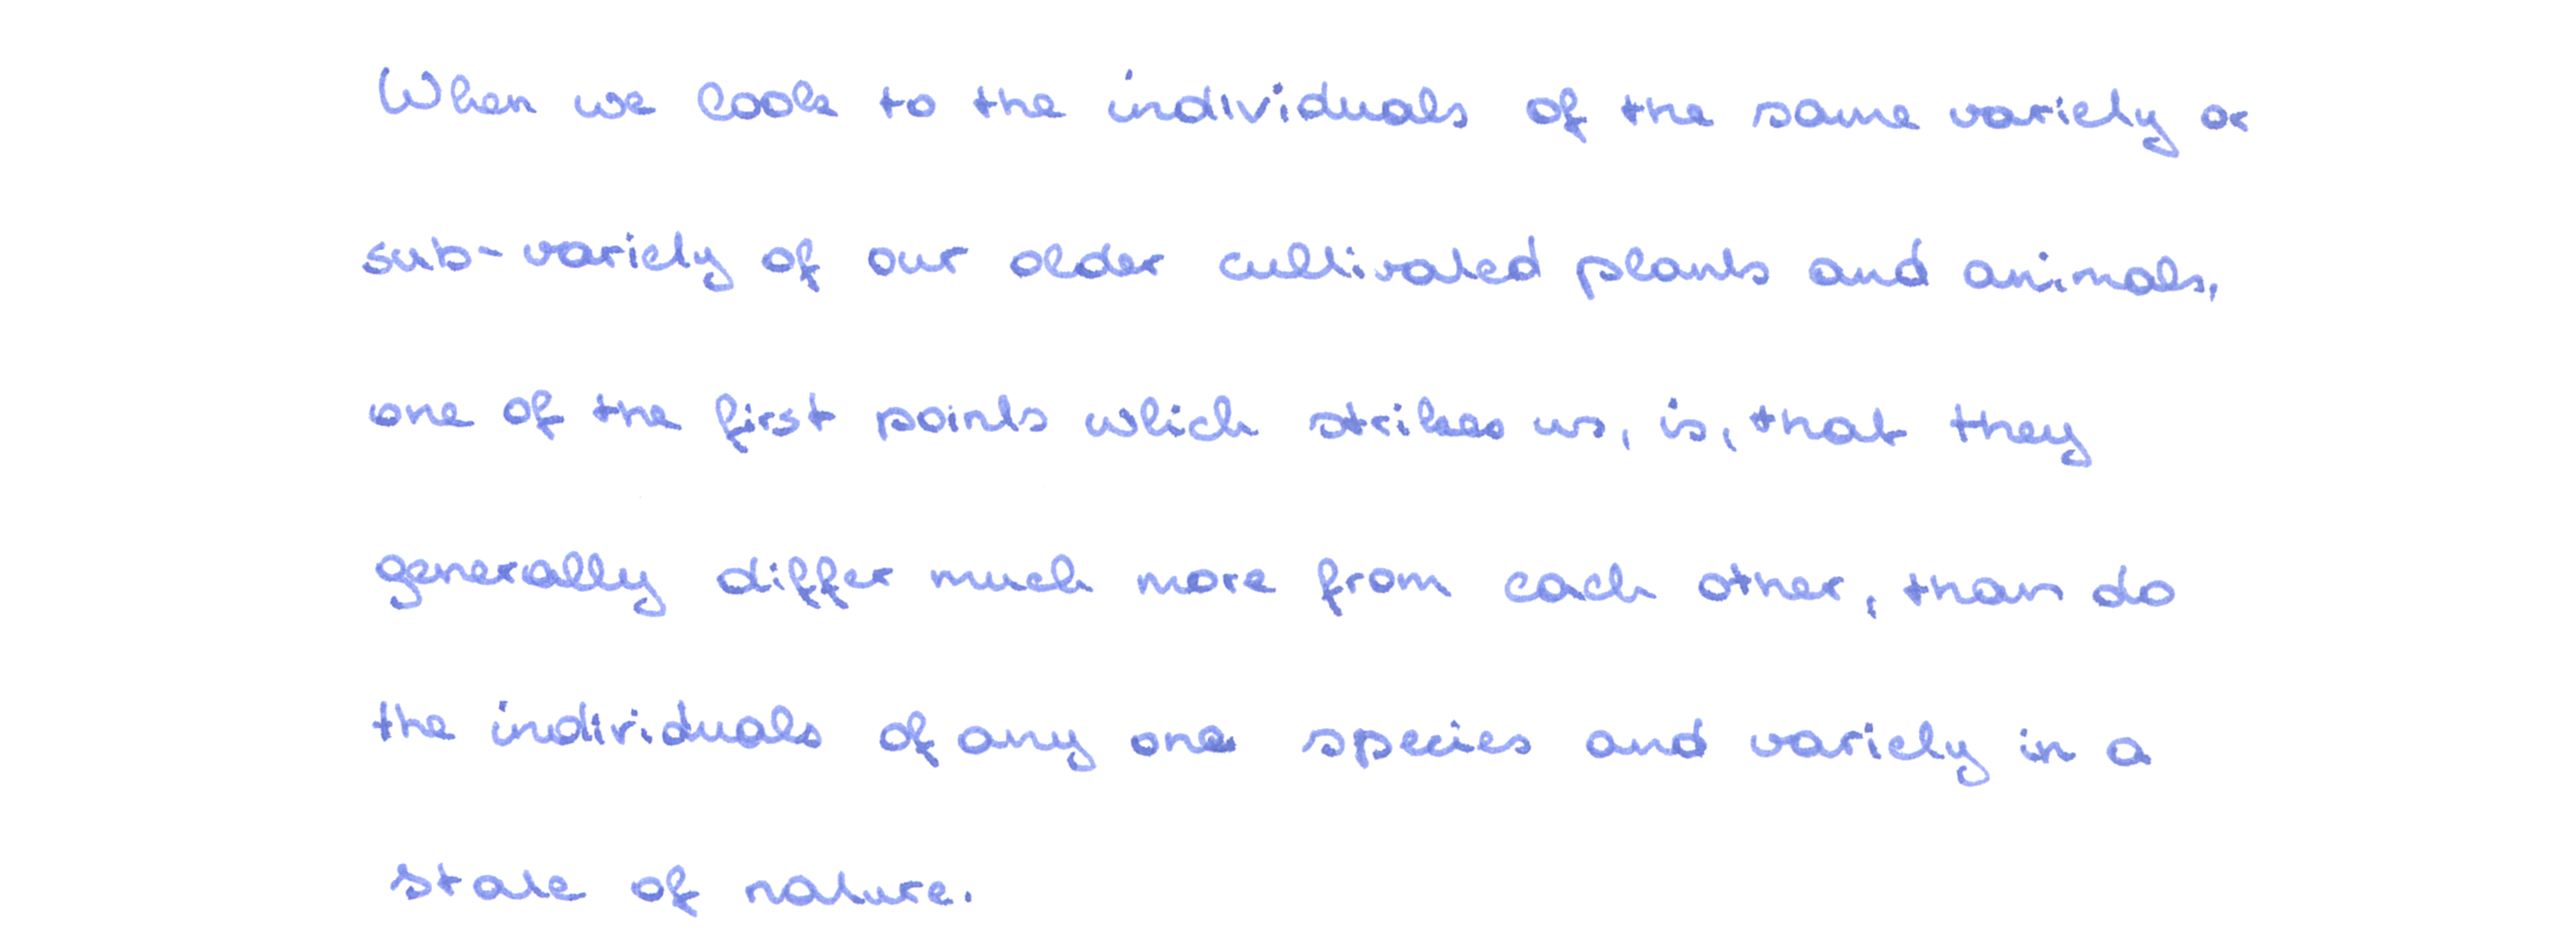 When we look to the individuals of the same variety or
sub-variety of our older cultivated plants and animals,
one of the first points which strikes us, is, that they
generally differ much more from each other, than do
the individuals of any one species and variety in a
state of nature.